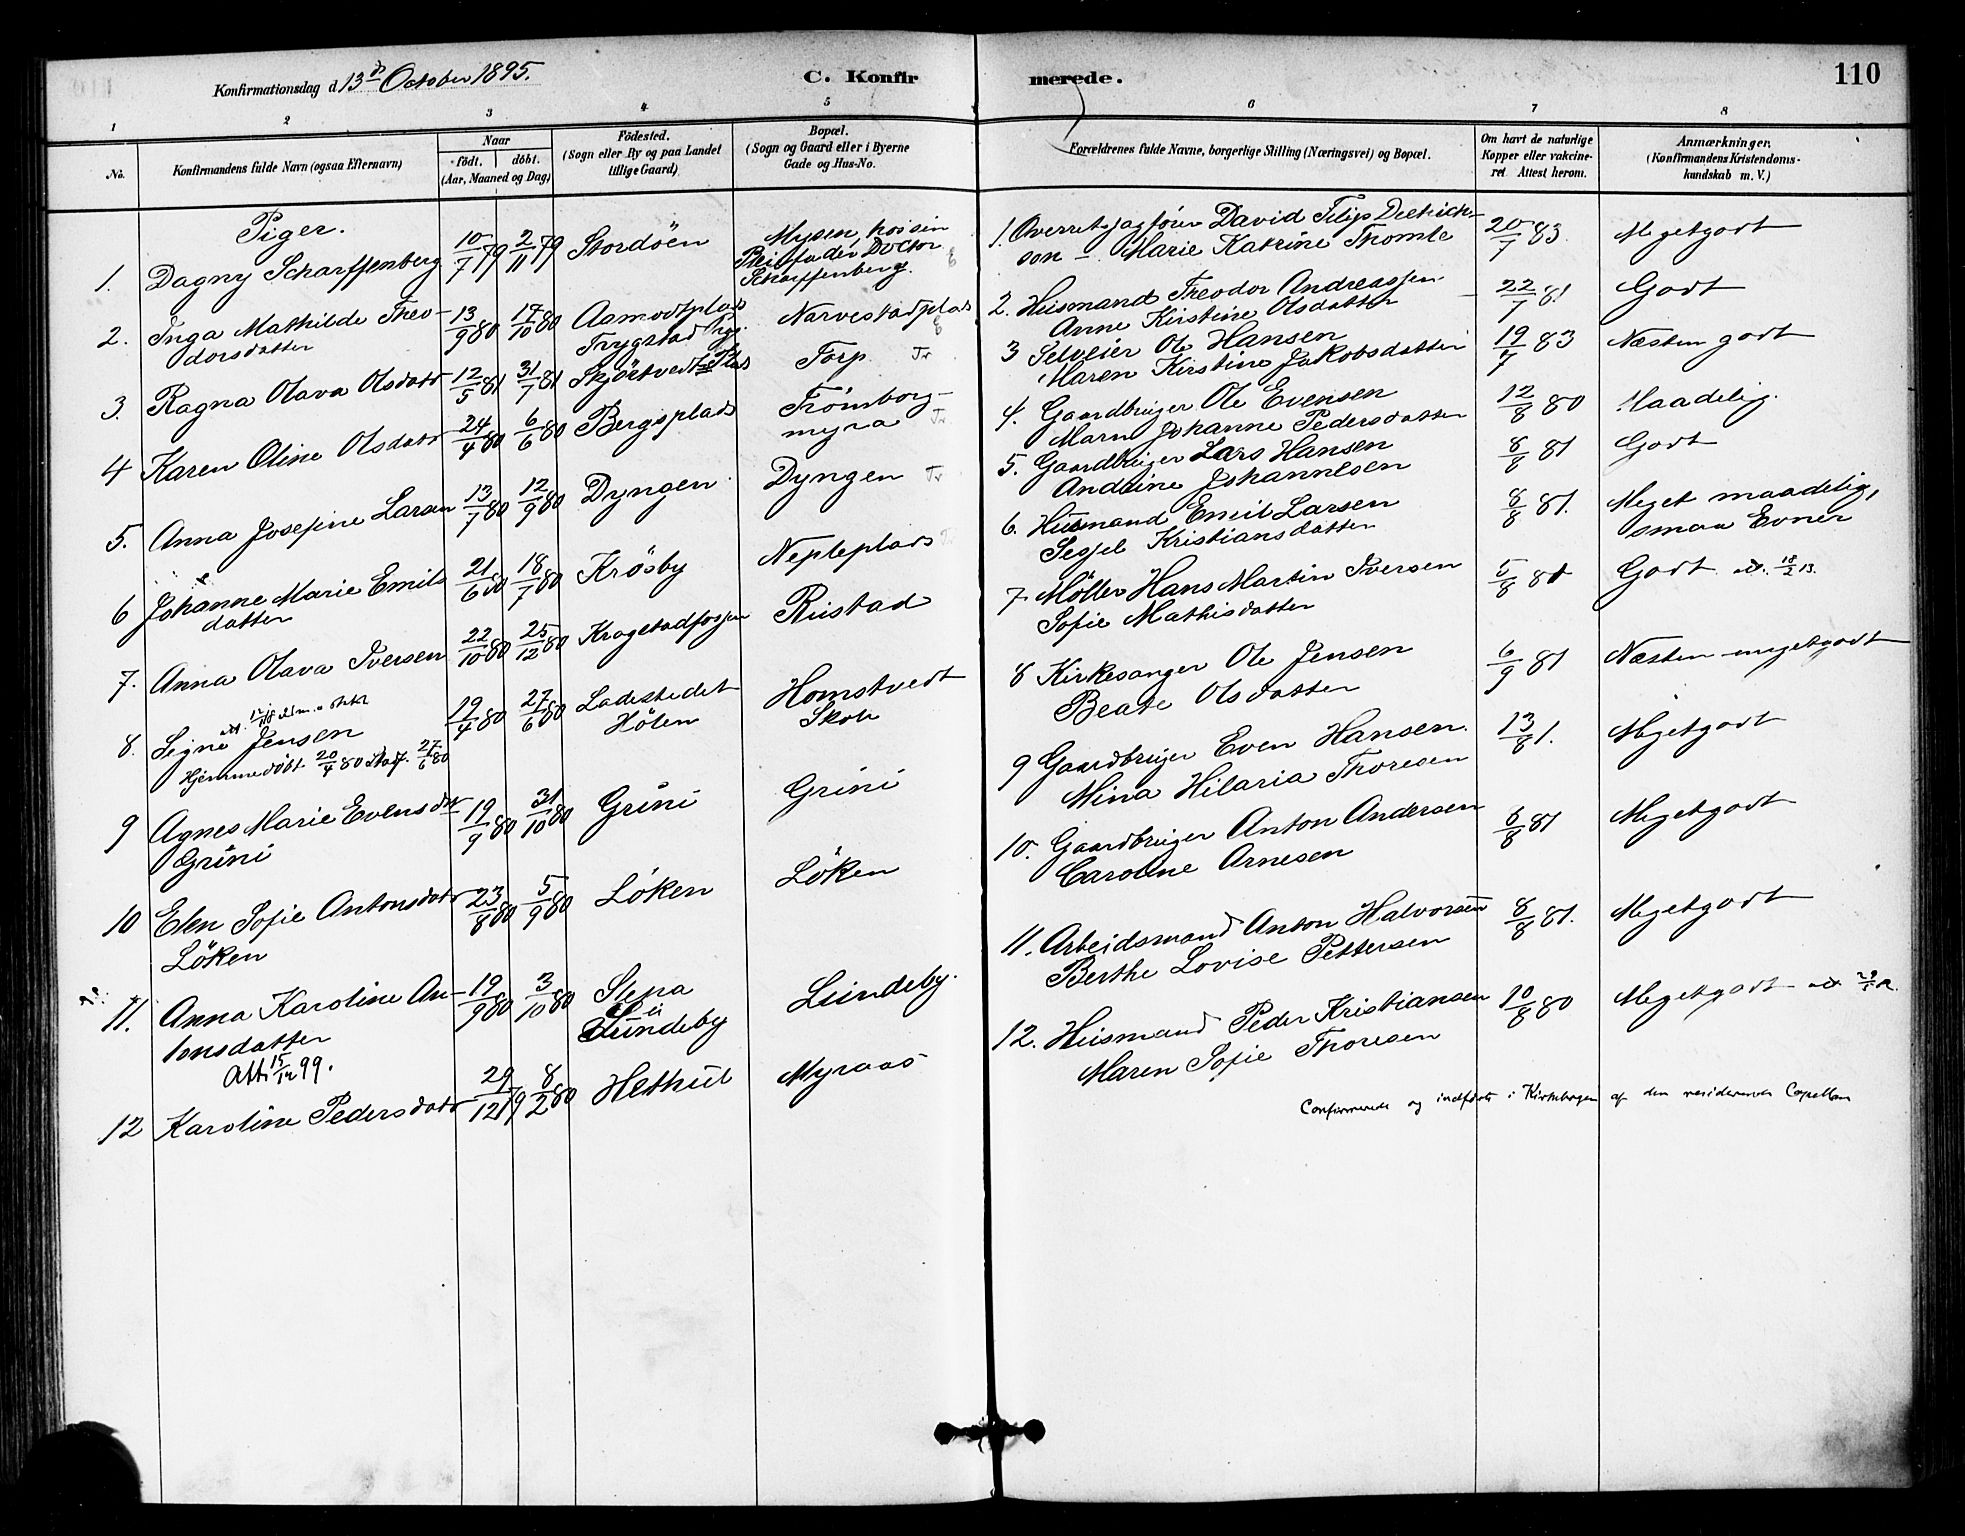 110
Konfirmationsdag d. 13de October 1895.
C. Konfirmerede.
1 2 3 4 5 6 7 8
No.
Konfirmandens fulde Navn (ogsaa Efternavn)
Naar
født. døbt.
(Aar, Maaned og Dag)
Födested.
(Sogn eller By og paa Landet
tillige Gaard)
Bopæl.
(Sogn og Gaard eller i Byerne
Gade og Hus-No.
Forældrenes fulde Navne, borgerlige Stilling (Næringsvei) og Bopæl.
Om havt de naturlige
Kopper eller vakcine-
ret. Attest herom.
Anmærkninger.
(Konfirmandens Kristendoms-
kundskab m. V.)
Piger.
1. Dagny Scharffenberg 10/7 79 2/11 79 Stordöen Mysen, hos sin
Pleifader Doctor
Scharffenberg.
1. Overretssagfører David Filip Dietrich-
son Marie Katrine Thomle
20/7 83. Megetgodt
2. Inga Mathilde Theo-
dorsdatter
13/9 80 17/10 80 Aamodtplads
Trygstad
Narvestadplads
2. Husmand Theodor Andreassen
Anne Kirstine Olsdatter
22/7 81 Godt
3. Ragna Olava Olsdatr 12/5 81 31/7 81 Skjöltvedt Plads Torp Tr
3 Selveier Ole Hansen
Maren Kirstine Jakobsdatter
19/7 83 Næsten godt
4 Karen Oline Olsdatr 24/4 80 6/6 80 Bergsplads Trömborg-
myra Tr
4. Gaardbruger Ole Evensen
Maren Johanne Pedersdatter
12/8 80 Maadelig.
5. Anna Josefine Larsen 13/7 80 12/9 80 Dyngen Dyngen Tr
5. Gaardbruger Lars Hansen
Andrine Johannesen
8/8 81 Godt
6 Johanne Marie Emils
datter
21/6 80 18/7 80 Krösby Nepleplads Tr
6. Husmand Emil Larsen
Sesjel Kristiansdatter
8/8 81. Meget maadelig,
smaa Evner
7. Anna Olava Iversen 22/10 80 25/12 80 Kragstadfossen Rustad
7 Möller Hans Martin Iversen
Sofie Mathisdatter
5/8 81 Godt
8. Signe Jensen
Hjemmedöbt 20/4 80 Stadf. 27/6 80
19/4 80 27/6 80 Ladestedet
Hölen
Homstvedt
Skole
8 Kirkesanger Ole Jensen
Beate Olsdatter
6/9 81 Næsten megetgodt
9 Agnes Marie Evensdtr
Grini
19/9 80 31/10 80 Grini Grini
9 Gaardbruger Even Hansen.
Mina Hilaria Thoresen
13/8 81. Megetgodt
10 Elen Sofie Antonsdatr
Löken
23/8 80 5/9 80 Löken Löken
10. Gaardbruger Anton Andersen
Caroline Arnesen
8/8 81 Megetgodt
11. Anna Karoline An-
tonsdatter
Att. 15/12 99.
19/9 80 3/10 80 Slepa
Lundeby
Lundeby.
11. Arbeidsmand Anton Halvorsen
Berthe Lovise Pettersen
8/8 81. Megetgodt
12 Karoline Pedersdatr 29/12 79 8/2 80 Hethul Myraas
12. Husmand Peder Kristiansen
Maren Sofie Thoresen
10/8 80 Megetgodt
Confirmerede og indførte i Kirkebogen af den residerende Capellan